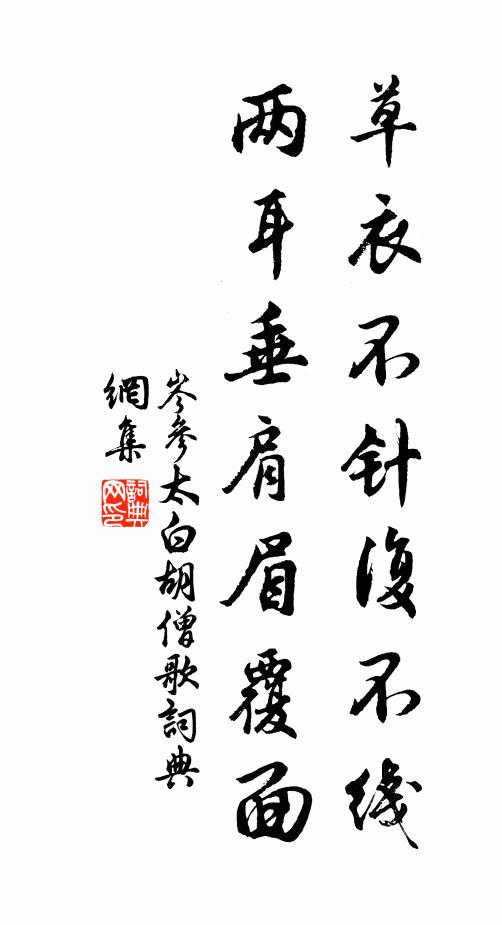 草衣不针復不线
两耳垂肩眉覆面
岑參太白胡僧歌詞典
網集
詞典
网印